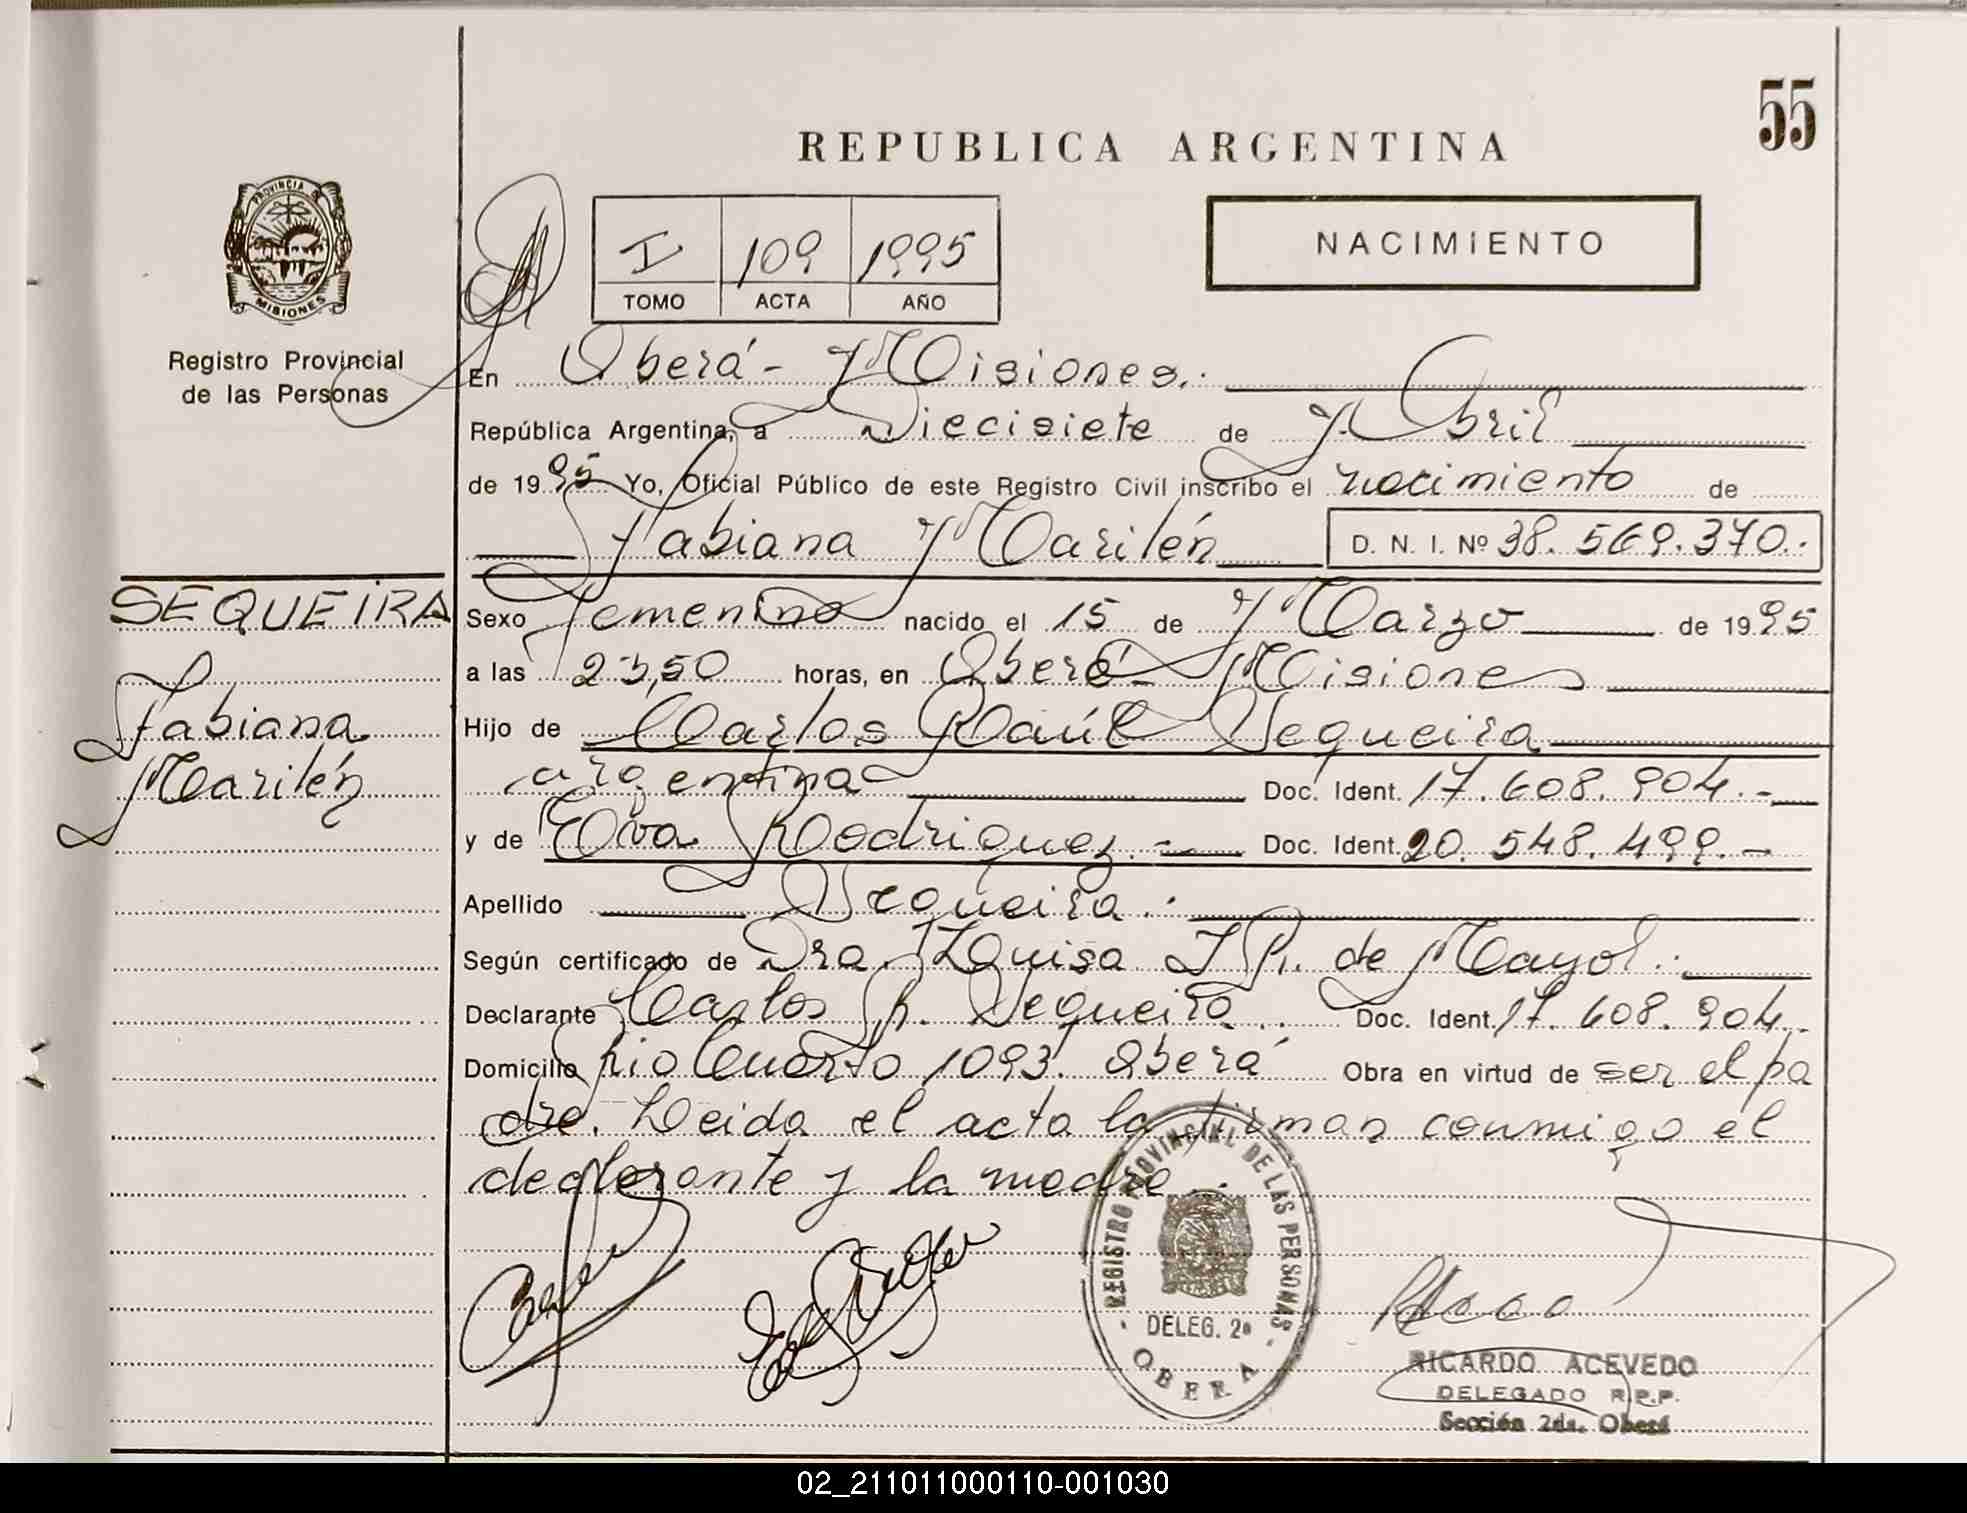 55
REPUBLICA ARGENTINA
PROVINCIA DE
MISIONES
Registro Provincial
de las Personas
I 109 1995
TOMO ACTA AÑO
NACIMIENTO
En Oberá - Misiones.
República Argentina, a Diecisiete de Abril
de 1995 Yo, Oficial Público de este Registro Civil inscribo el nacimiento de
Fabiana Marilén D. N. I. Nº 38.569.370.
SEQUEIRA
Fabiana
Marilén
Sexo femenino nacido el 15 de Marzo de 1995
a las 23,50 horas, en Oberá - Misiones
Hijo de Carlos Raúl Sequeira
argentina Doc. Ident. 17.608.904.-
y de Eva Rodriguez.- Doc. Ident. 20.548.499.-
Apellido Sequeira.
Según certificado de Dra. Louisa I. P. de Mayol.
Declarante Carlos R. Sequeira Doc. Ident. 17.608.904.
Domicilio Rio Cuarto 1093. Oberá Obra en virtud de ser el pa
dre. Leida el acta la firman conmigo el
declarante y la madre.
REGISTRO PROVINCIAL DE LAS PERSONAS
DELEG. 2ª
OBERA
RICARDO ACEVEDO
DELEGADO R.P.P.
Sección 2da. Oberá
02_211011000110-001030